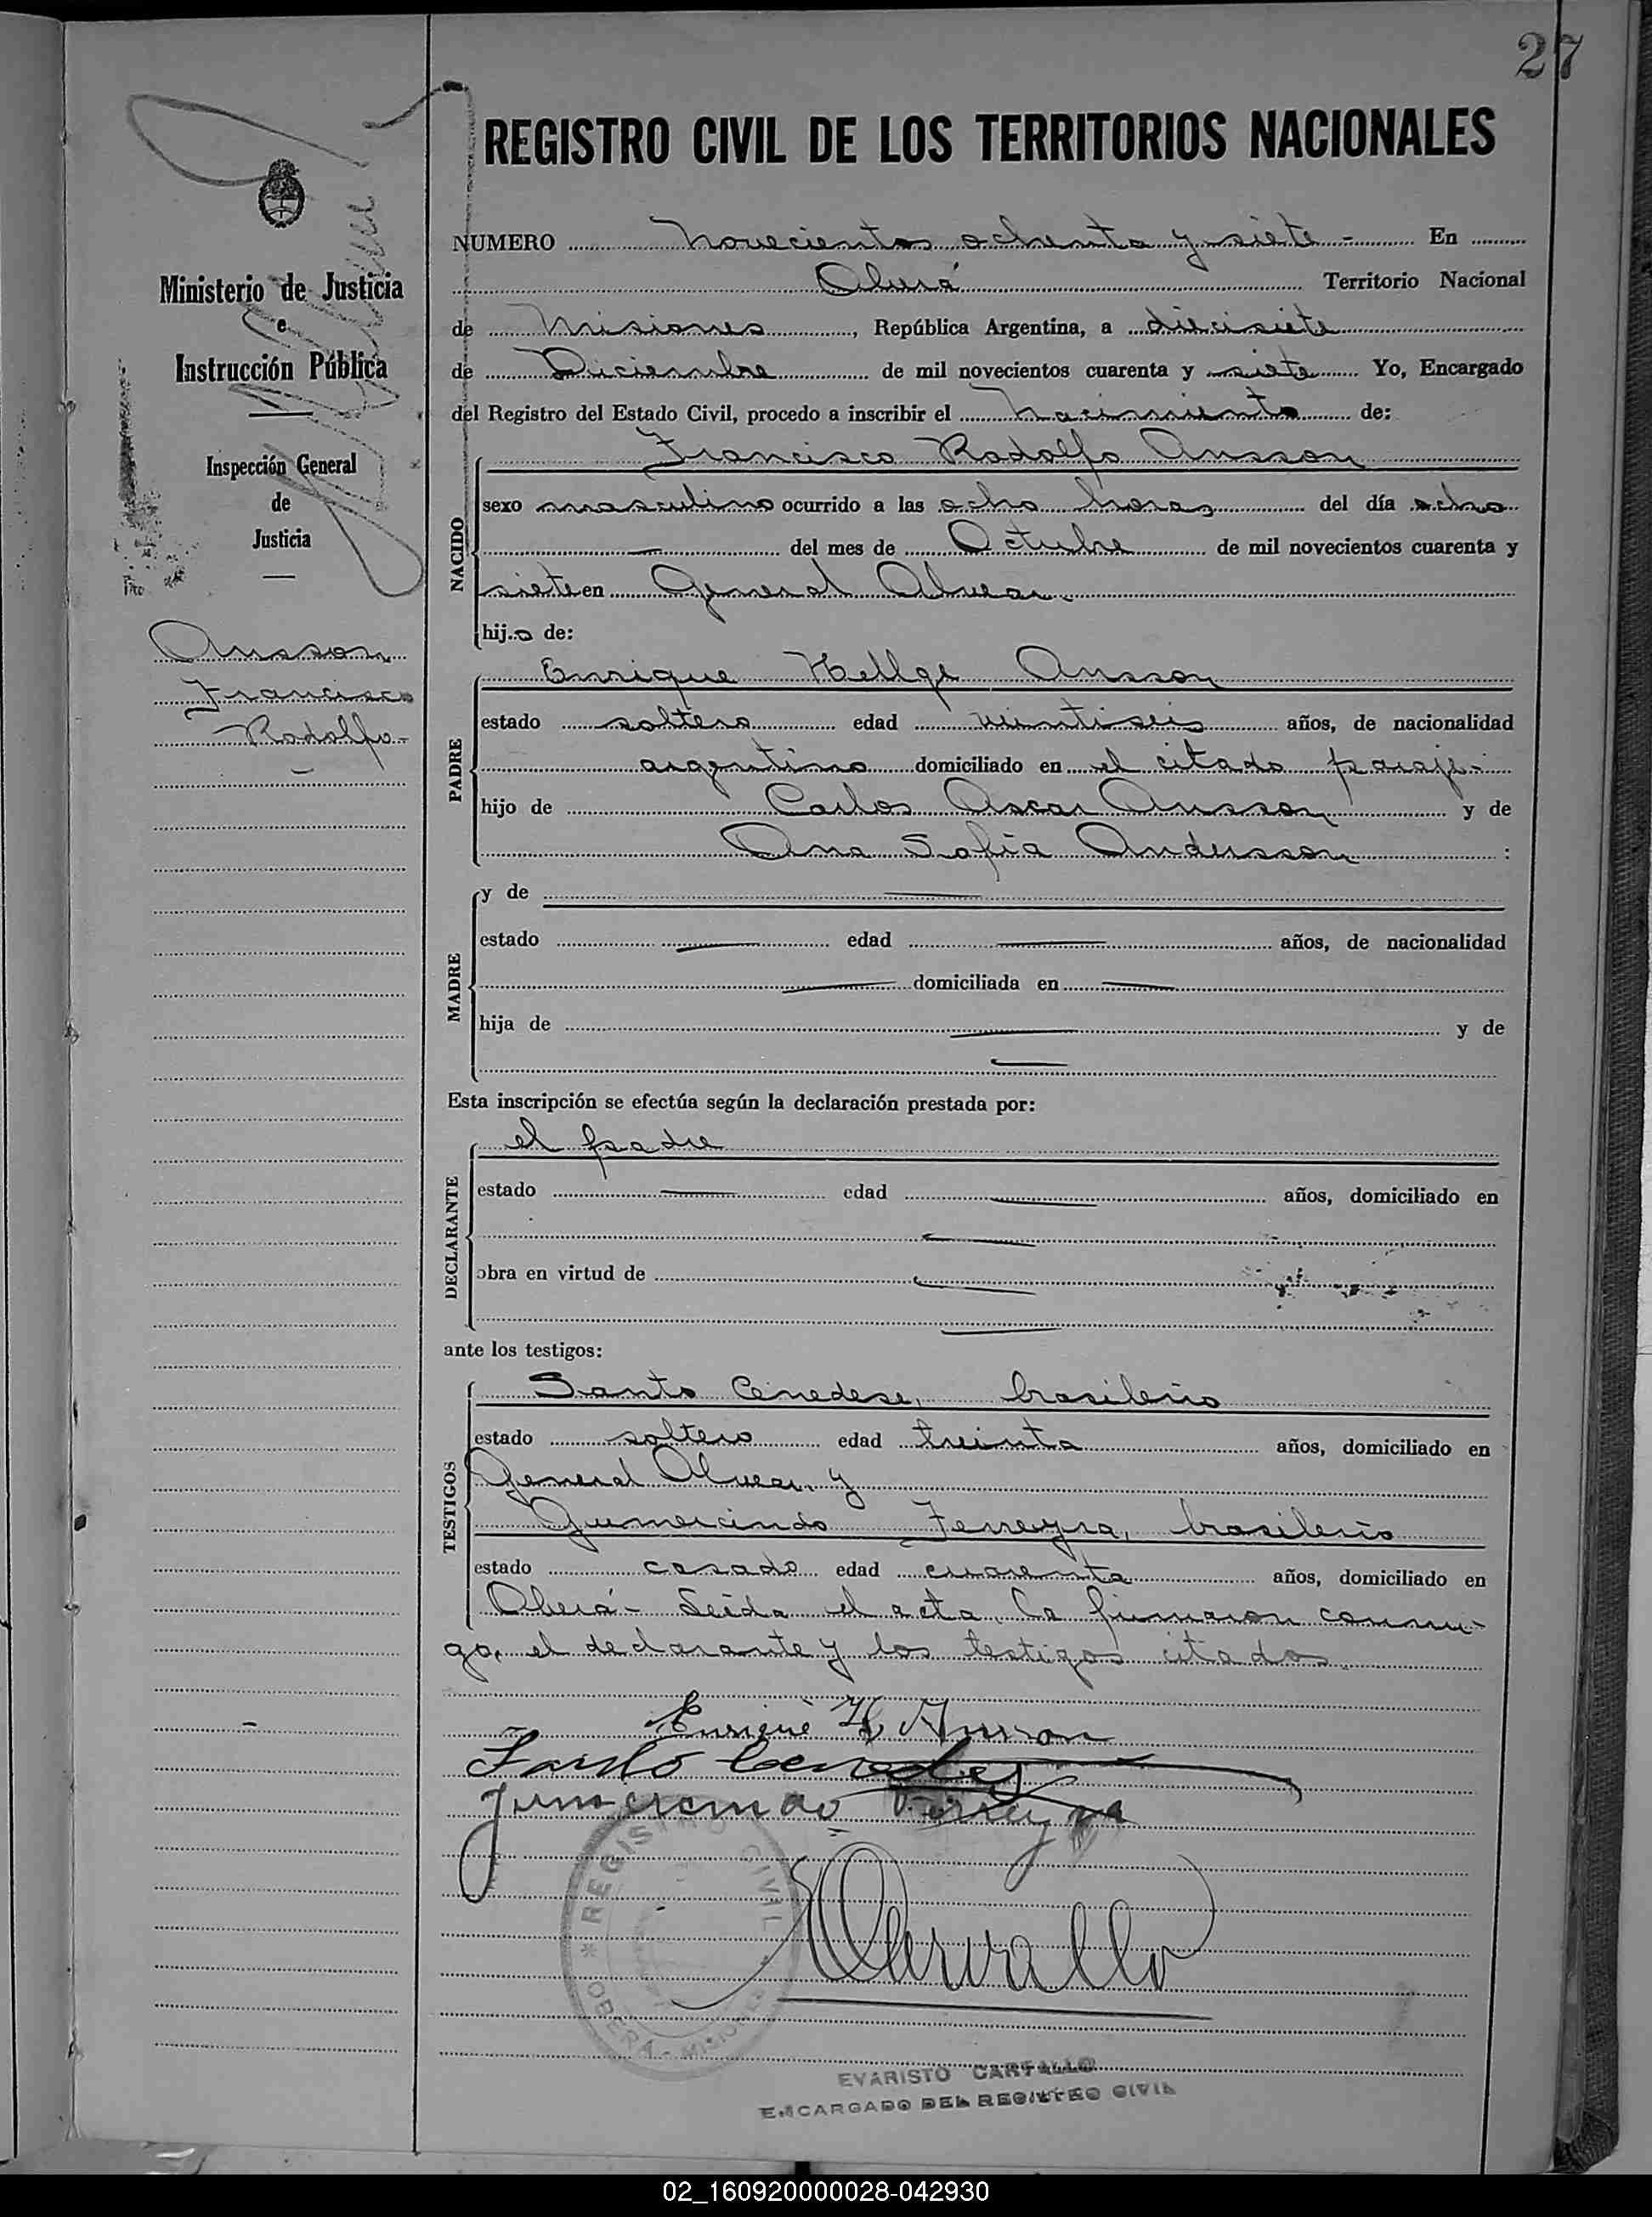 27
REGISTRO CIVIL DE LOS TERRITORIOS NACIONALES
Ministerio de Justicia
e
Instrucción Pública
Inspección General
de
Justicia
Ansson
Francisco
Rodolfo-
NUMERO novecientos ochenta y siete - En
Oberá Territorio Nacional
de Misiones, República Argentina, a diecisiete
de Diciembre de mil novecientos cuarenta y siete Yo, Encargado
del Registro del Estado Civil, procedo a inscribir el nacimiento de:
NACIDO
Francisco Rodolfo Ansson
sexo masculino ocurrido a las ocho horas del día ocho
del mes de Octubre de mil novecientos cuarenta y
siete en General Alvear.
hijo de:
PADRE
Enrique Hellge Ansson
estado soltero edad veintiseis años, de nacionalidad
argentino domiciliado en el citado paraje-
hijo de Carlos Ascar Ansson y de
Ana Sofia Andersson :
MADRE
y de
estado edad años, de nacionalidad
domiciliada en
hija de y de
Esta inscripción se efectúa según la declaración prestada por:
DECLARANTE
el padre
estado edad años, domiciliado en
obra en virtud de
ante los testigos:
TESTIGOS
Santo Cenedese, brasileño
estado soltero edad treinta años, domiciliado en
General Alvear y
Gumercindo Ferreyra, brasileño
estado casado edad cuarenta años, domiciliado en
Oberá- Leida el acta, la firmaron conmi-
go, el declarante y los testigos citados.
Enrique H. Ansson
Santo Cenedes
Jumercindo Ferreyra
REGISTRO CIVIL * OBERA - MISIONES
EVARISTO CARVALLO
ENCARGADO DEL REGISTRO CIVIL
02_160920000028-042930